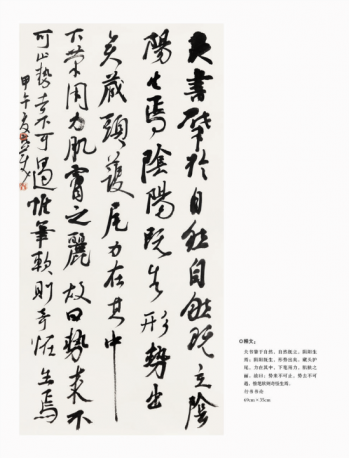 夫書肇於自然自然既立陰
陽生焉陰陽既生形勢出
矣藏頭護尾力在其中
下筆用力肌膚之麗故曰勢來不
可止勢去不可遏惟筆軟則奇怪生焉
甲午夏
◎释文:
夫书肇于自然,自然既立,阴阳生
焉;阴阳既生,形势出矣。藏头护
尾,力在其中,下笔用力,肌肤之
丽。故曰:势来不可止,势去不可
遏,惟笔软则奇怪生焉。
行书书论
69cm×35cm